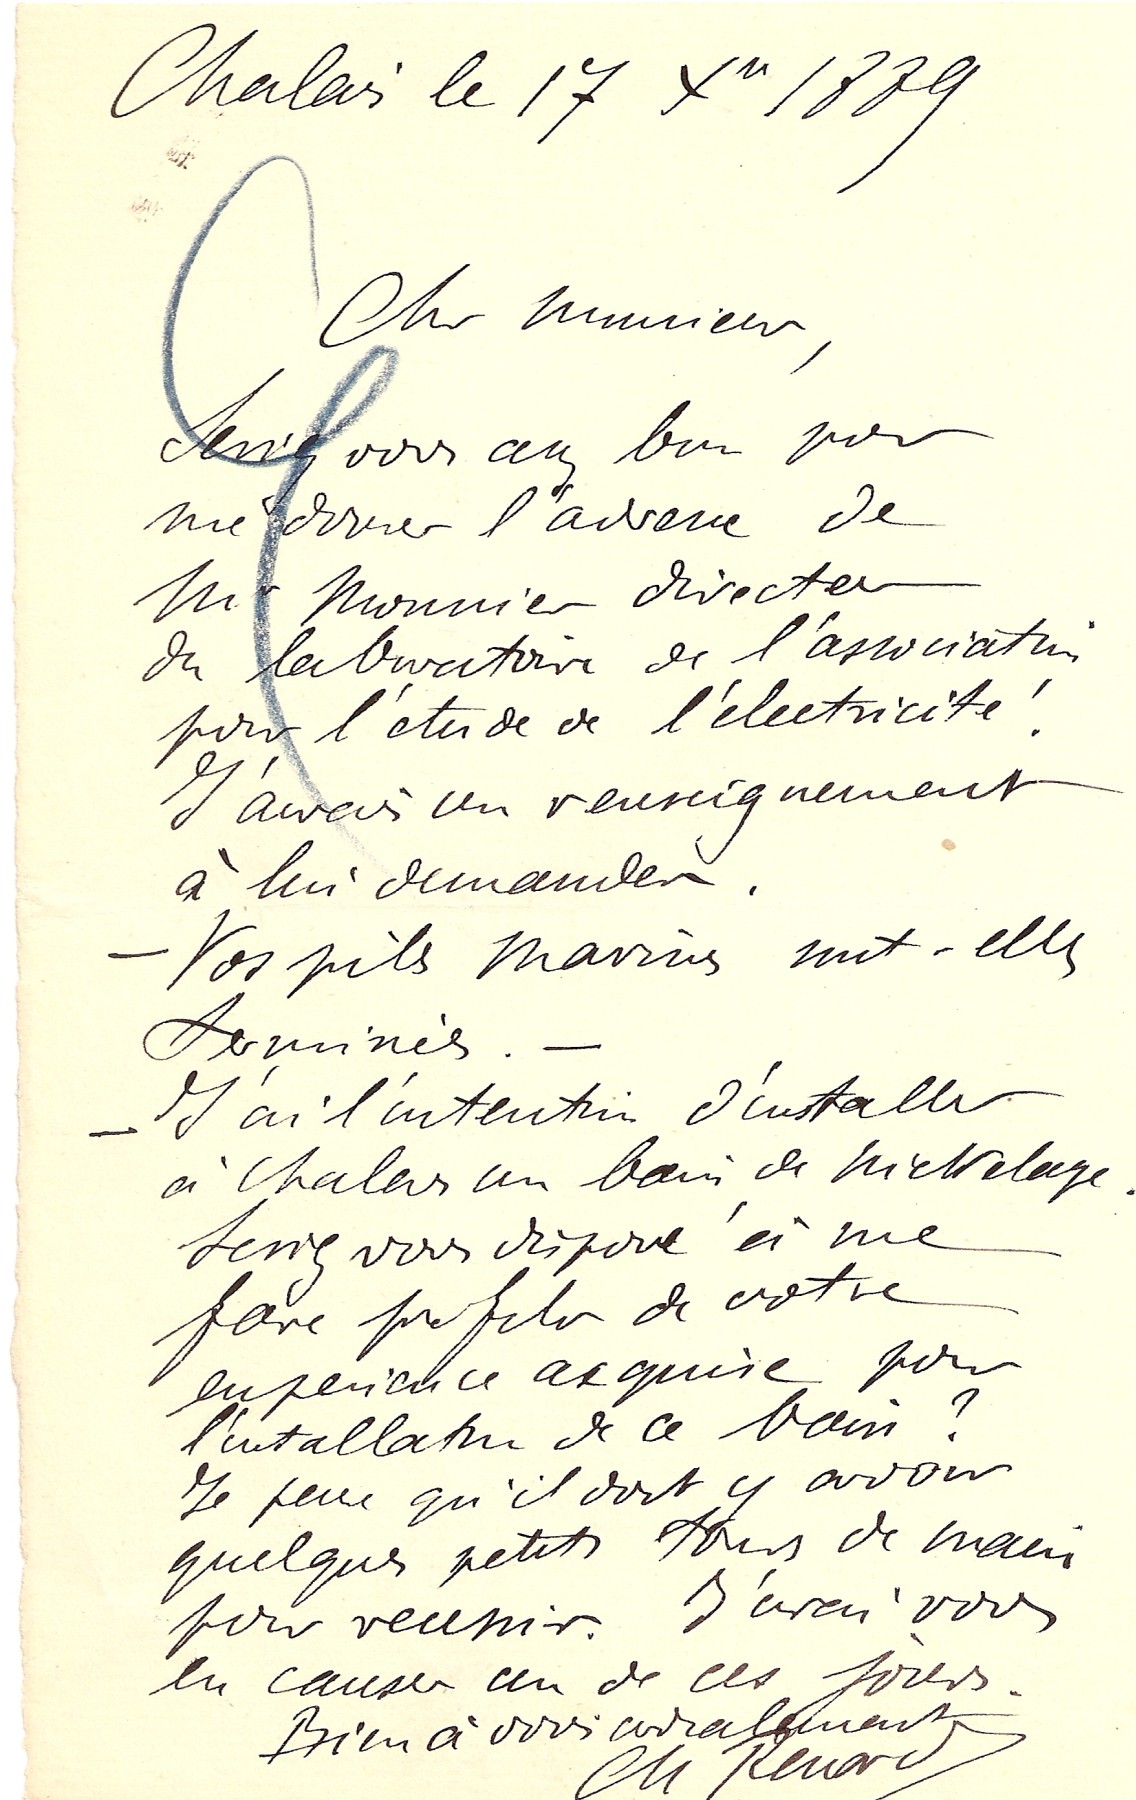 Chalais le 17 Xre 1889
Cher Monsieur,
Seriez vous assez bon pour
me donner l'adresse de
Mr Monnier directeur
du laboratoire de l'association
pour l'étude de l'électricité.
J'aurais un renseignement
à lui demander.
– Vos piles marines sont-elles
terminées. –
– J'ai l'intention d'installer
à Chalais un bain de nickelage.
Seriez vous disposé à me
faire profiter de votre
expérience acquise pour
l'installation de ce bain ?
Je pense qu'il doit y avoir
quelques petits tours de main
pour réussir. J'irai vous
en causer un de ces jours.
Bien à vous cordialement
Ch Renard